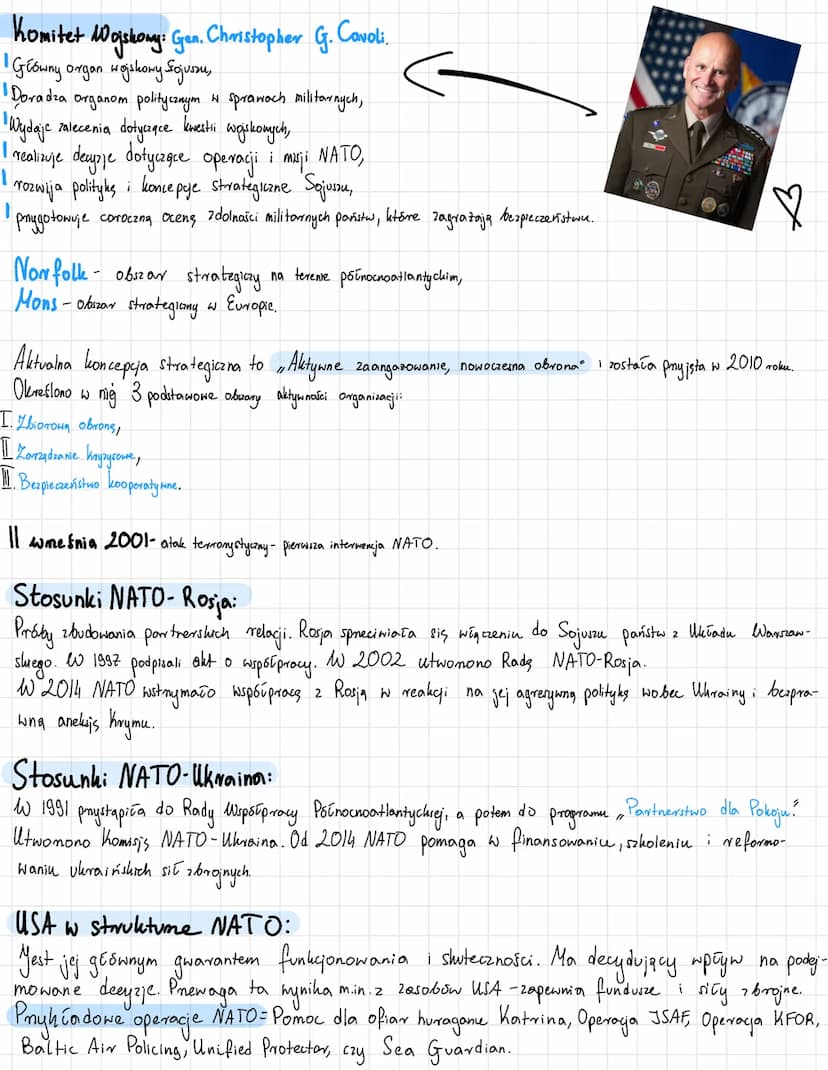 Komitet Wojskowy: Gen. Christopher G. Cavoli.
Główny organ wojskowy Sojuszu,
Doradza organom politycznym w sprawach militarnych,
Wydaje zalecenia dotyczące kwestii wojskowych,
realizuje decyzje dotyczące operacji i misji NATO,
rozwija politykę i koncepcje strategiczne Sojuszu,
przygotowuje coroczną ocenę zdolności militarnych państw, które zagrażają bezpieczeństwu.
Norfolk - obszar strategiczy na terenie północnoatlantyckim,
Mons - obszar strategiczny w Europie.
Aktualna koncepcja strategiczna to „Aktywne zaangażowanie, nowoczesna obrona" i została przyjęta w 2010 roku.
Określono w niej 3 podstawowe obszary aktywności organizacji:
I. Zbiorową obronę,
II Zarządzanie kryzysowe,
III. Bezpieczeństwo kooperatywne.
11 września 2001- atak terrorystyczny - pierwsza interwencja NATO.
Stosunki NATO- Rosja:
Próby zbudowania partnerskich relacji. Rosja sprzeciwiała się włączeniu do Sojuszu państw z Układu Warszaw-
skiego. W 1997 podpisali akt o współpracy. W 2002 utworzono Radę NATO-Rosja.
W 2014 NATO wstrzymało współpracę z Rosją w reakcji na jej agresywną politykę wobec Ukrainy i bezpra-
wną aneksję Krymu.
Stosunki NATO-Ukraina:
W 1991 przystąpiła do Rady Współpracy Północnoatlantyckiej, a potem do programu „Partnerstwo dla Pokoju."
Utworzono Komisję NATO-Ukraina. Od 2014 NATO pomaga w finansowaniu, szkoleniu i reformo-
waniu ukraińskich sił zbrojnych.
USA w strukturze NATO:
Jest jej głównym gwarantem funkcjonowania i skuteczności. Ma decydujący wpływ na podej-
mowane decyzje. Przewaga ta wynika m.in. z zasobów USA - zapewnia fundusze i siły zbrojne.
Przykładowe operacje NATO= Pomoc dla ofiar huraganu Katrina, Operacja ISAF, Operacja KFOR,
Baltic Air Policing, Unified Protector, czy Sea Guardian.